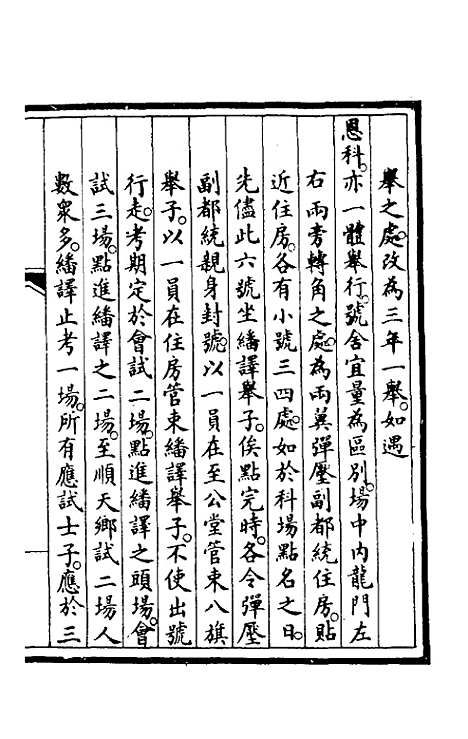 舉之處。改為三年一舉。如遇
恩科。亦一體舉行。號舍宜量為區別。場中內龍門左
右兩旁轉角之處。為兩翼彈壓副都統住房。貼
近住房。各有小號三四處。如於科場點名之日。
先儘此六號坐繙譯舉子。俟點完時。各令彈壓
副都統親身封號。以一員在至公堂管束八旗
舉子。以一員在住房管束繙譯舉子。不使出號
行走。考期定於會試二場。點進繙譯之頭場。會
試三場。點進繙譯之二場。至順天鄉試二場人
數衆多。繙譯止考一場。所有應試士子。應於三